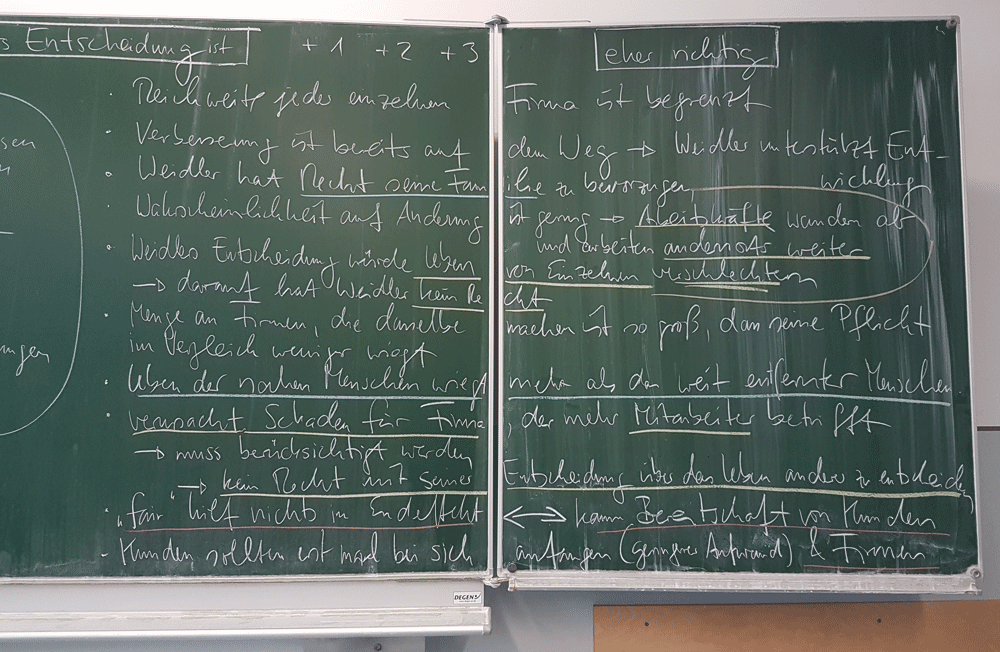 s Entscheidung ist +1 +2 +3 eher richtig
· Reichweite jedes einzelnen Firma ist begrenzt
· Verbesserung ist bereits auf dem Weg → Weidler unterstützt Ent-
wicklung
· Weidler hat Recht seine Familie zu bevorzugen
· Wahrscheinlichkeit auf Änderung ist gering → Arbeitskräfte wandern ab
und arbeiten anderorts weiter
· Weidlers Entscheidung würde Leben von Einzelnen verschlechtern
→ darauf hat Weidler kein Recht
· Menge an Firmen, die dasselbe machen ist so groß, dass seine Pflicht
im Vergleich weniger wiegt
· Leben der nahen Menschen wiegt mehr als das weit entfernter Menschen
· verursacht Schaden für Firma, der mehr Mitarbeiter betrifft
→ muss berücksichtigt werden
→ kein Recht mit seiner Entscheidung über das Leben anderer zu entscheiden
· „fair" hilft nichts in Endeffekt ⟷ kaum Bereitschaft von Kunden
- Kunden sollten erst mal bei sich anfangen (geringerer Aufwand) & Firmen
sen
n
ungen
DEGEN